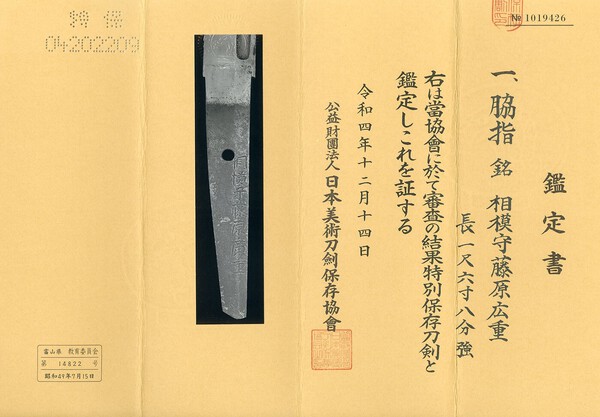 № 1019426
鑑定書
一、脇指 銘 相模守藤原広重
長一尺六寸八分強
右は當協會に於て審査の結果特別保存刀剣と
鑑定しこれを証する
令和四年十二月十四日
公益財團法人 日本美術刀剣保存協會
特保
04202209
富山県 教育委員会
第 14822 号
昭和49年7月15日